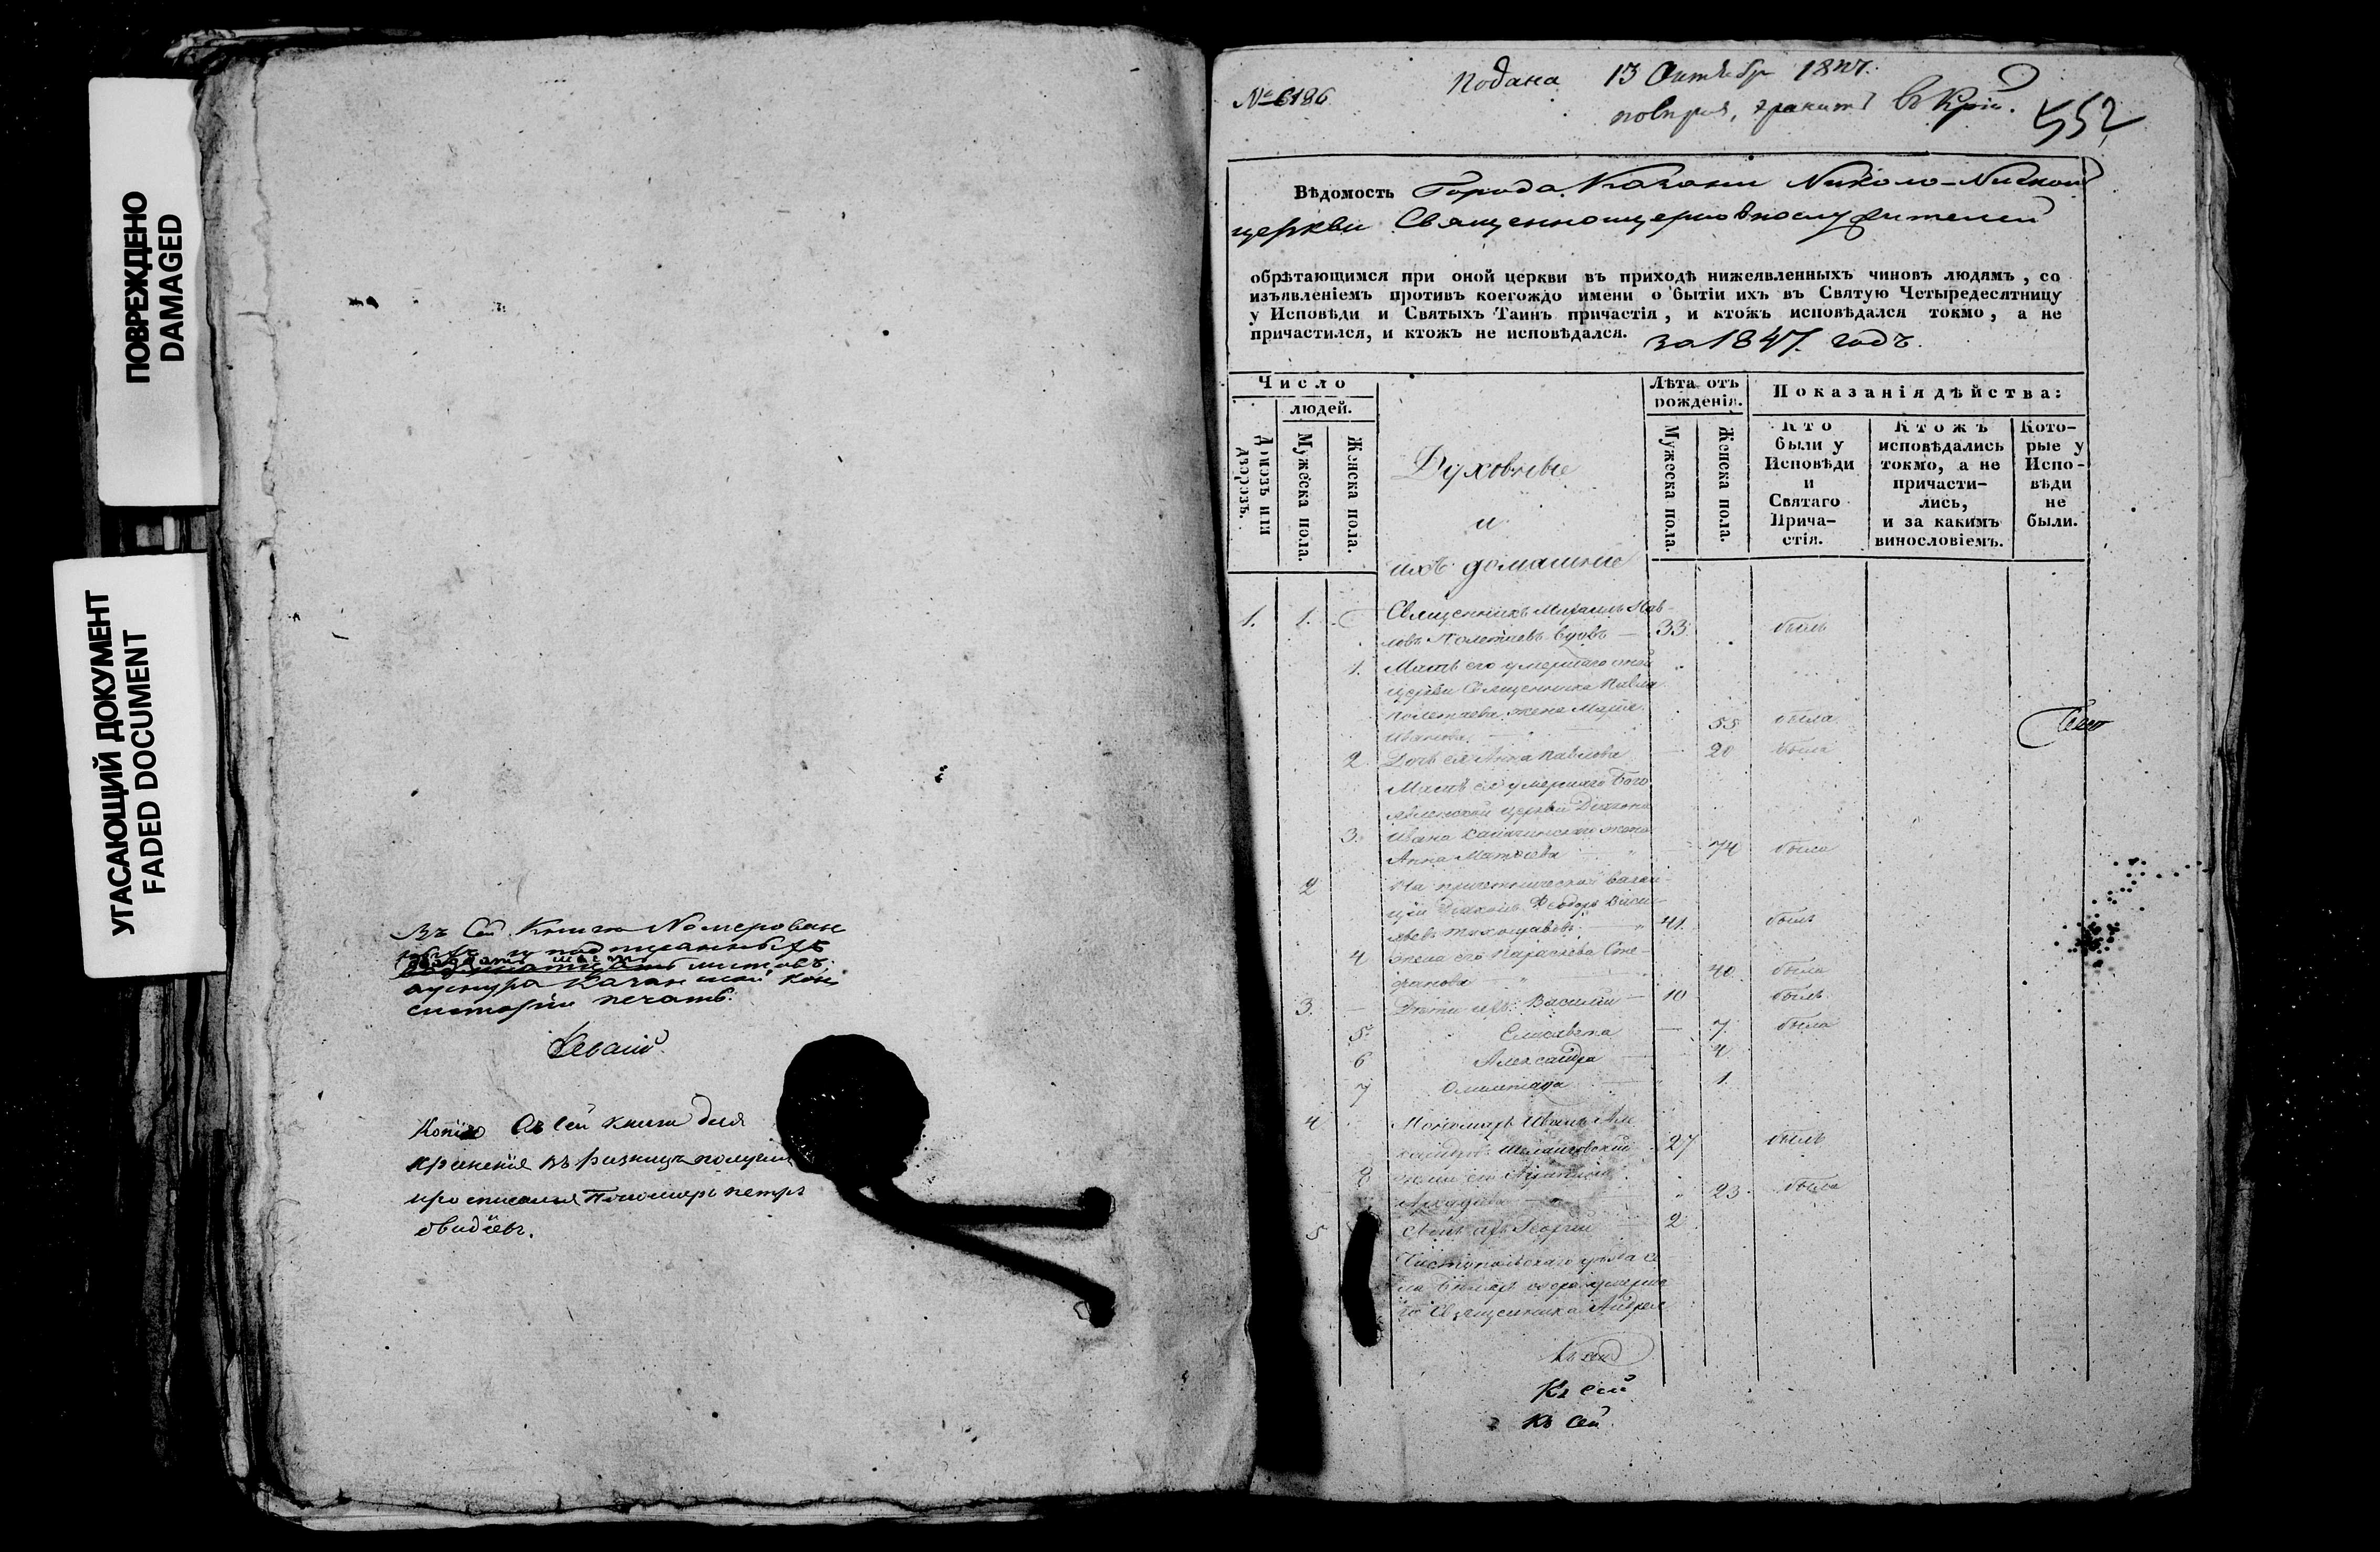 ПОВРЕЖДЕНО
DAMAGED
УГАСАЮЩИЙ ДОКУМЕНТ
FADED DOCUMENT
Въ Сей Книге Номерован
ныхъ и подписанныхъ
листовъ;
аукнура Казанской Кон
систории печать.
Копию Съ сей книги для
хранения въ ризницу получилъ
и росписался Пономарь петръ
овидіевъ.
№ 6186
Подана 13 Октября 1847.
552
Вѣдомость Города Казани Николо-Низкой
церкви Священноцерковнослужителей
обрѣтающимся при оной церкви въ приходѣ нижеявленныхъ чиновъ людямъ, со
изъявленіемъ противъ коегождо имени о бытіи ихъ въ Святую Четыредесятницу
у Исповѣди и Святыхъ Таинъ причастія, и ктожъ исповѣдался токмо, а не
причастился, и ктожъ не исповѣдался. за 1847. годъ.
Число
людей.
Домовъ или дворовъ.
Мужеска пола.
Женска пола.
Духовные
и
ихъ домашніе
Лѣта отъ
рожденія.
Мужеска пола.
Женска пола.
Показанія дѣйства:
Кто
были у
Исповѣди
и
Святаго
Прича-
стія.
Ктожъ
исповѣдались
токмо, а не
причасти-
лись,
и за какимъ
винословіемъ.
Кото-
рые у
Испо-
вѣди
не
были.
1. 1. Священникъ Михаилъ Пав-
ловъ Полетаевъ вдовъ — 33 былъ
1. Мать его умершаго оной
церкви Священника Павла
Полетаева жена Марья
Иванова 55 была
2 Дочь ея Анна Павлова 20 была
Мать ея умершаго Бого
явленской церкви Діакона
3. Ивана жена
Анна Матвеева 74 была
2 На причетнической вакан-
ціи Діаконъ Ѳеодоръ Васи-
льевъ 41 былъ
4 жена его Параскева Сте-
фанова 40 была
3. Дѣти ихъ: Василій 10 былъ
5. Елисавета 7 была
6 Александра 4
7 Олимпіада 1.
4 Пономарь Иванъ Але
27 былъ
8 жена его
23 была
5 Сынъ ихъ Георгій 2
Чистопольскаго уѣзда се
ла умерша
го Священника Андрея
Къ сей
Къ сей
Къ сей